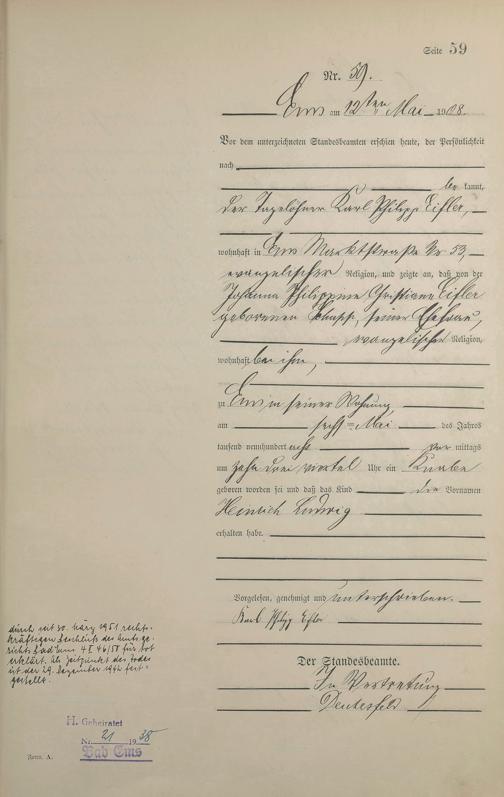 Seite 59
Nr. 59.
Ems am 12ten Mai 1908.
Vor dem unterzeichneten Standesbeamten erschien heute, der Persönlichkeit
nach
be kannt,
der Tagelöhner Karl Philipp Eisler,
wohnhaft in Ems Marktstraße Nr 53,
evangelischer Religion, und zeigte an, daß von der
Johanna Philippine Christiane Eisler
geborenen seiner Ehefrau,
evangelischer Religion,
wohnhaft bei ihm,
zu Ems in seiner Wohnung
am sechsten Mai des Jahres
tausend neunhundert acht vor mittags
um zehn drei viertel Uhr ein Knabe
geboren worden sei und daß das Kind die Vornamen
Heinrich Ludwig
erhalten habe.
Vorgelesen, genehmigt und unterschrieben.
Karl Philipp Eisler
Der Standesbeamte.
In Vertretung
durch seit 30. März 1951 rechts-
kräftigen Beschluß des Amtsge-
richts Bad Ems 4 II 46/51 für tot
erklärt. Als Zeitpunkt des Todes
ist der 29. Dezember 1942 fest-
gestellt.
H. Geheiratet
Nr. 21 1938
Bad Ems
Form. A.